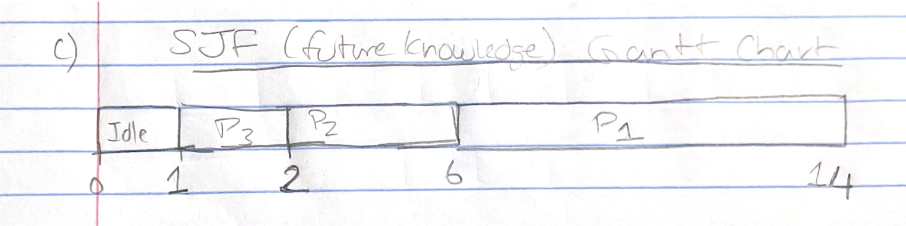 c) SJF (future knowledge) Gantt Chart
Idle P3 P2 P1
0 1 2 6 14